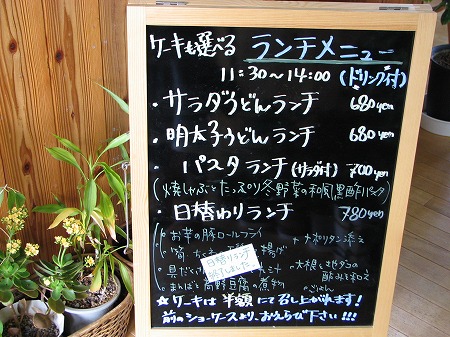 ケーキも選べる ランチメニュー
11:30〜14:00 (ドリンク付)
・サラダうどんランチ 680yen
・明太子うどんランチ 680yen
・パスタランチ(サラダ付) 700yen
(焼しゃぶとたっぷり冬野菜の和風黒酢パスタ)
・日替わりランチ 780yen
・お芋の豚ロールフライ
・ナポリタン添え
揚げ
日替りランチ
終了しました
・大根と地ダコの
酢みそ和え
高野豆腐の煮物
・ごはん
☆ケーキは半額にて召し上がれます!
前のショーケースより、お選び下さい!!!